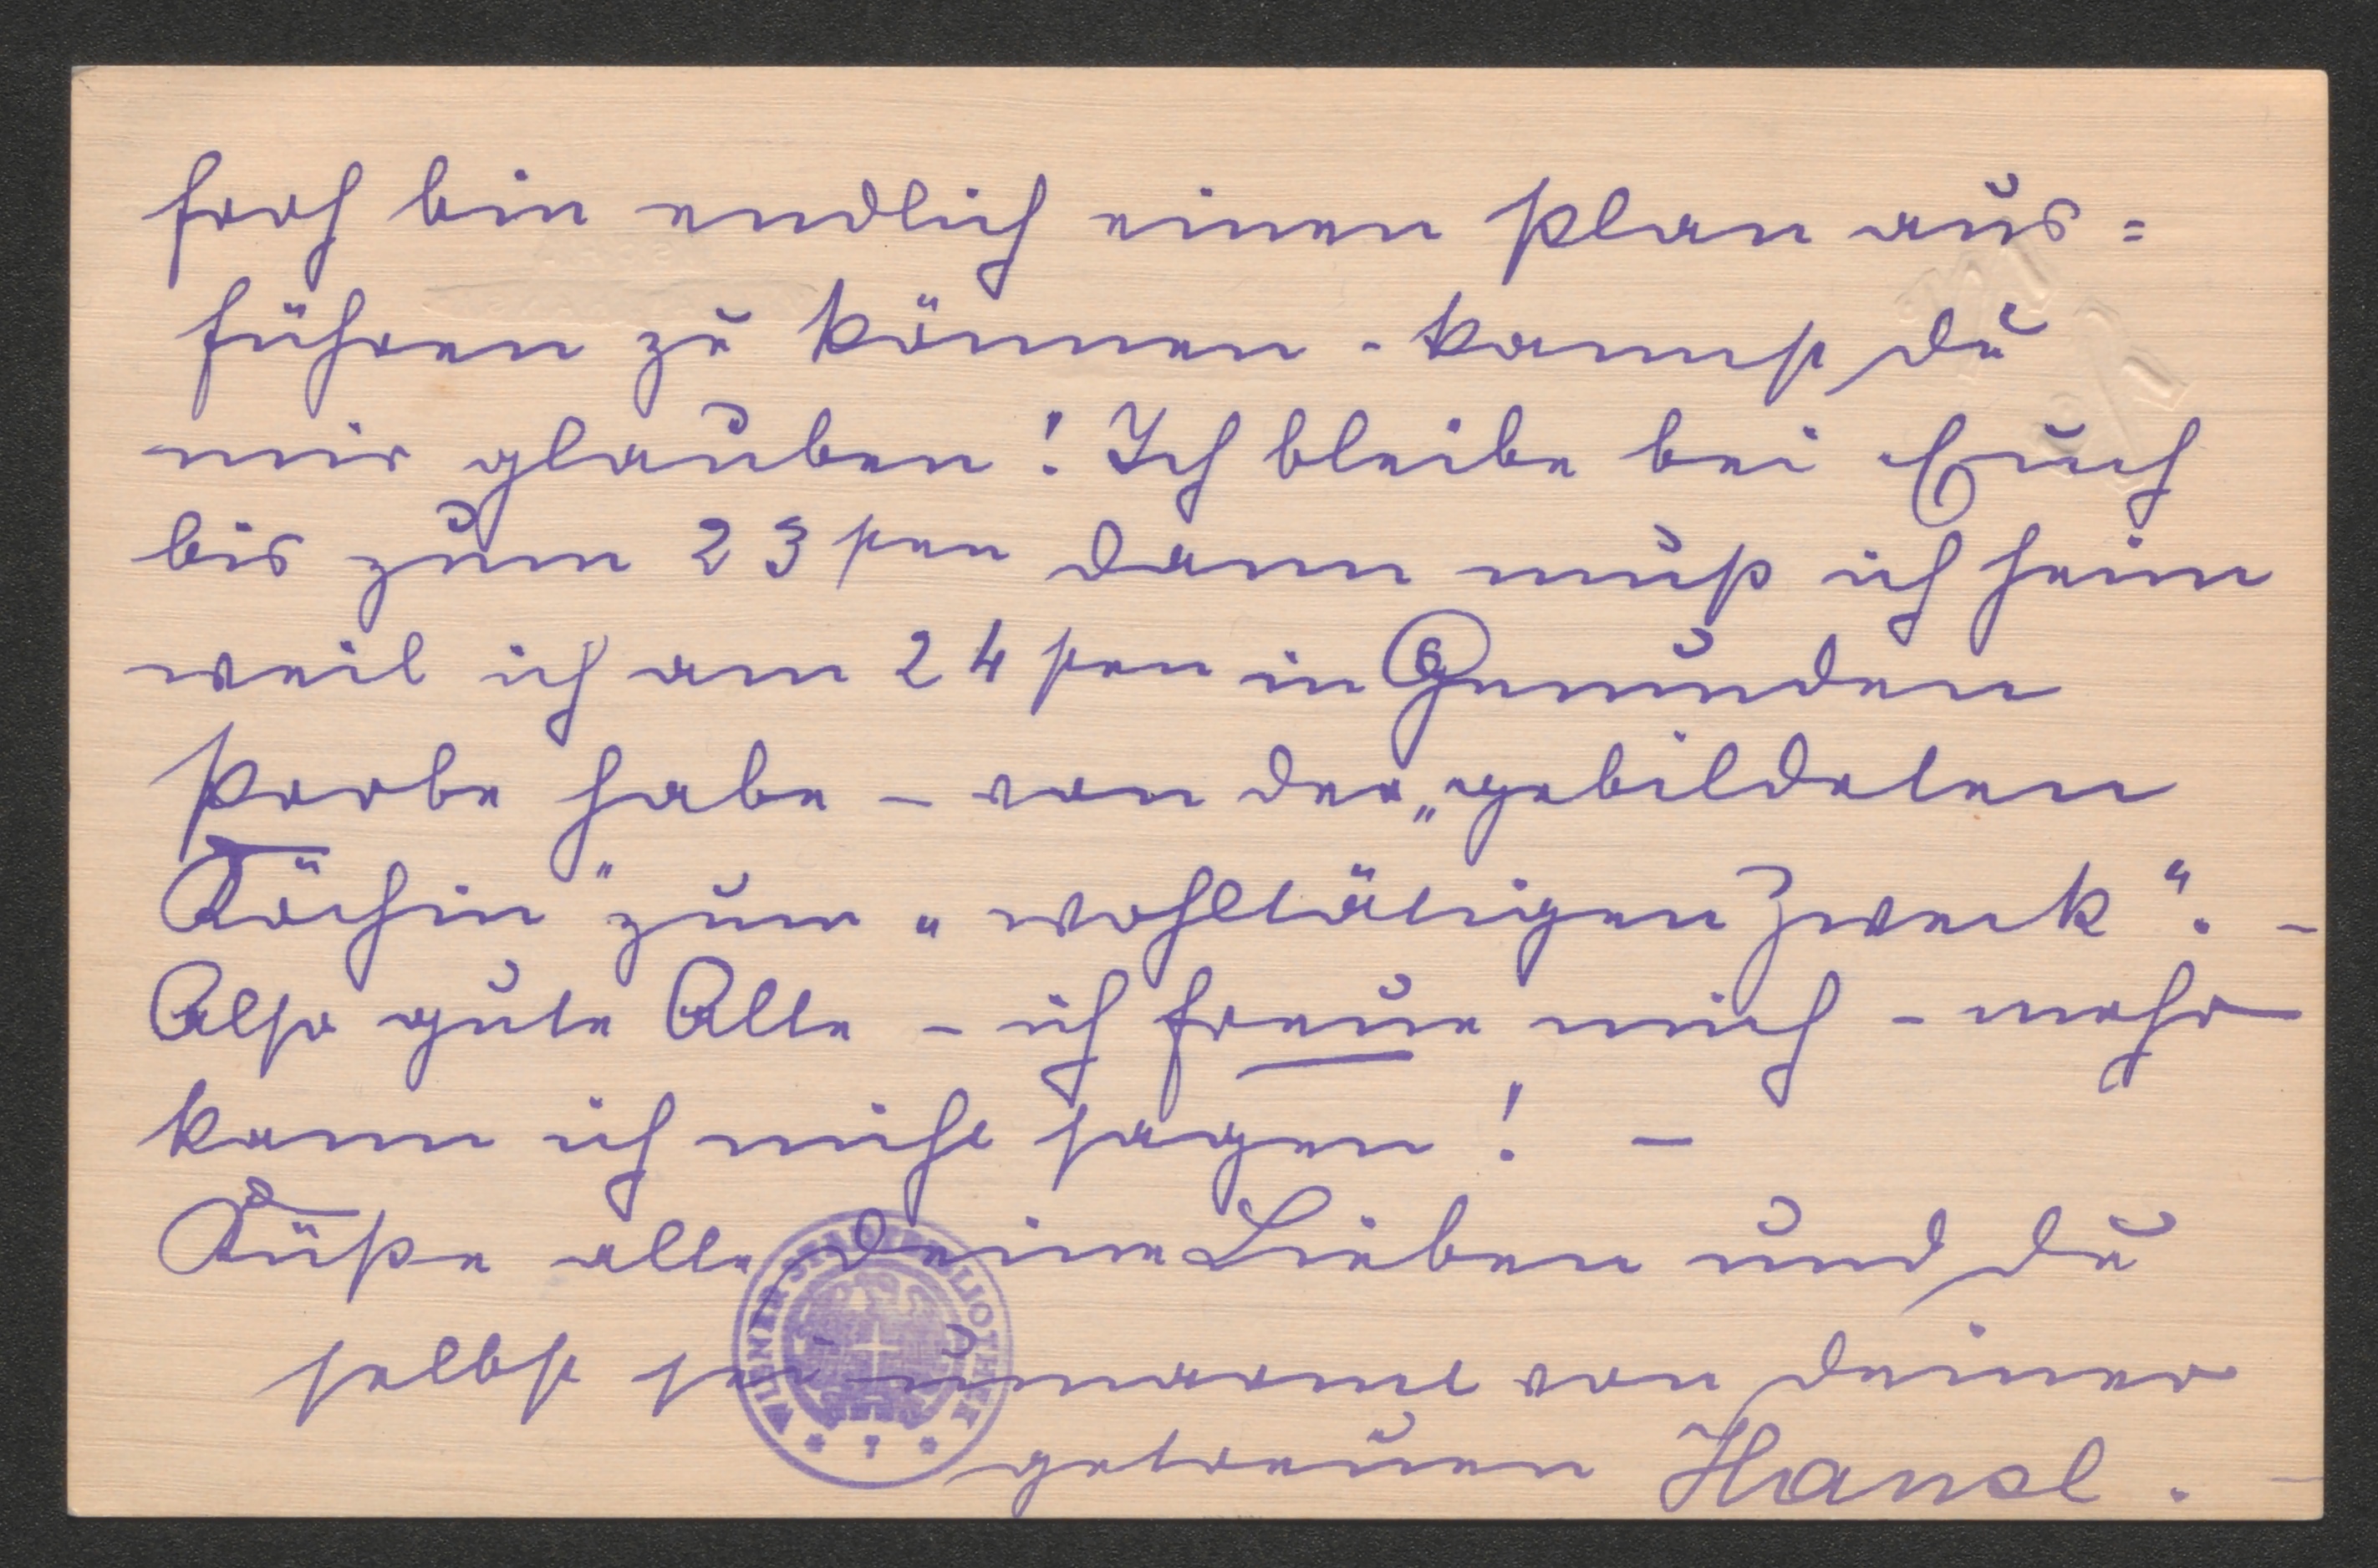 froh bin endlich einen Plan aus=
führen zu können - kannst du
mir glauben! Ich bleibe bei Euch
bis zum 23sten dann muß ich heim
weil ich am 24sten in Gmunden
Probe habe – von der „gebildeten
Köchin" zum „wohltätigen Zweck". –
Also gute Alte – ich freue mich – mehr
kann ich nicht sagen! –
Küße alle deine Lieben und du
selbst sei umarmt von deiner
getreuen Hansl.
WIENER STADTBIBLIOTHEK